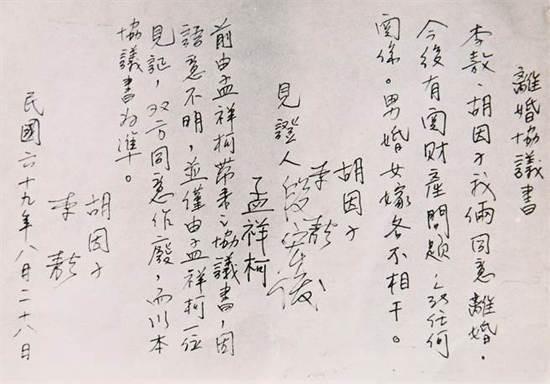 離婚協議書
李敖、胡因子我倆同意離婚,
今後有關財產問題,任何
關係。男婚女嫁各不相干。
胡因子
李敖
見證人 段宏俊
孟祥柯
前由孟祥柯帶來之協議書,因
語意不明,並僅由孟祥柯一位
見証,双方同意作廢,而以本
協議書為準。
胡因子
李敖
民國六十九年八月二十八日